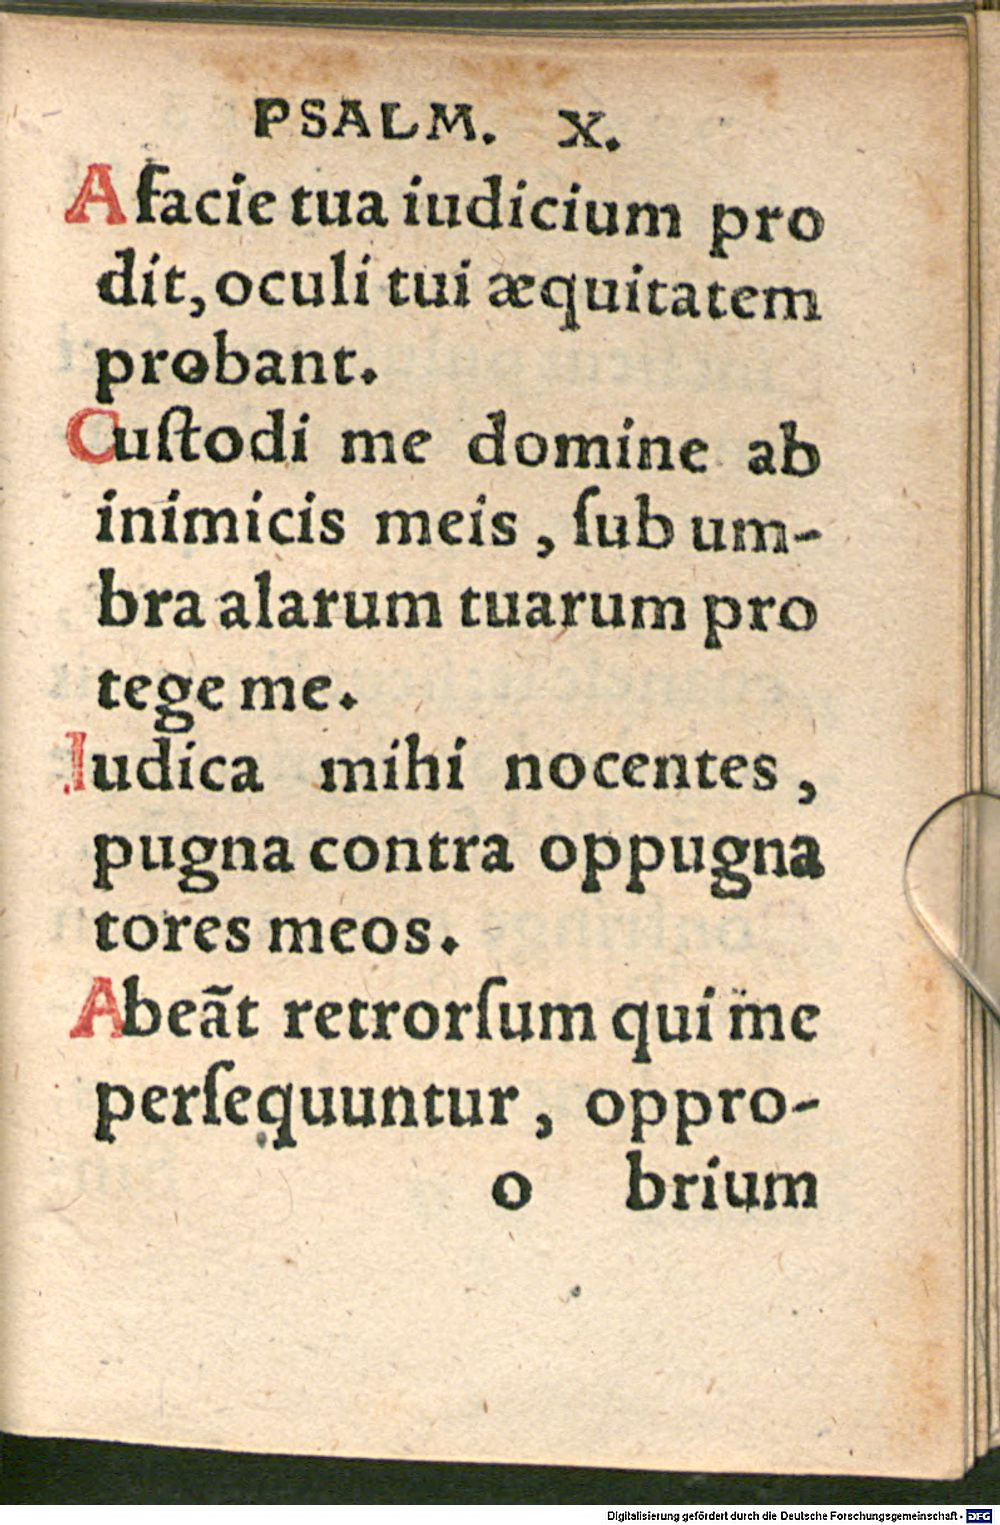 PSALM. X.
A facie tua iudicium pro
dit, oculi tui æquitatem
probant.
Cuſtodi me domine ab
inimicis meis, ſub um-
bra alarum tuarum pro
tege me.
Iudica mihi nocentes,
pugna contra oppugna
tores meos.
Abeãt retrorſum qui me
perſequuntur, oppro-
o brium
Digitalisierung gefördert durch die Deutsche Forschungsgemeinschaft - DFG